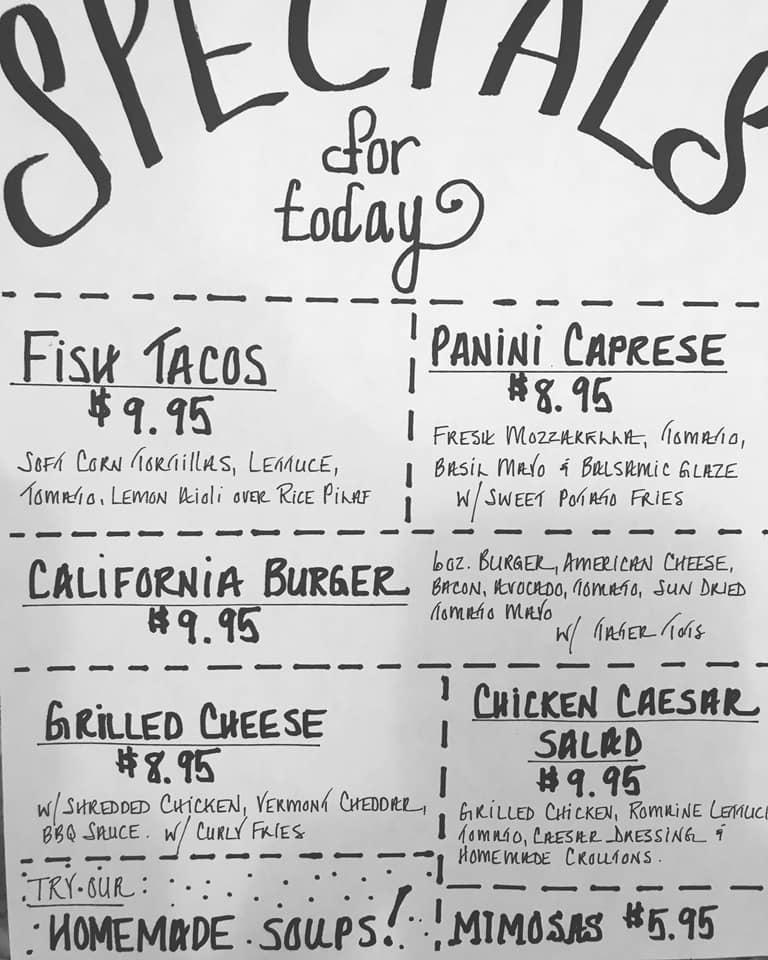 SPECIALS
for
today
FISH TACOS
$9.95
SOFT CORN TORTILLAS, LETTUCE,
TOMATO, LEMON AIOLI OVER RICE PILAF
PANINI CAPRESE
$8.95
FRESH MOZZARELLA, TOMATO,
BASIL MAYO & BALSAMIC GLAZE
W/ SWEET POTATO FRIES
CALIFORNIA BURGER
$9.95
6OZ. BURGER, AMERICAN CHEESE,
BACON, AVOCADO, TOMATO, SUN DRIED
TOMATO MAYO
W/ TATER TOTS
GRILLED CHEESE
$8.95
W/ SHREDDED CHICKEN, VERMONT CHEDDAR,
BBQ SAUCE. W/ CURLY FRIES
CHICKEN CAESAR
SALAD
$9.95
GRILLED CHICKEN, ROMAINE LETTUCE
TOMATO, CAESAR DRESSING &
HOMEMADE CROUTONS.
TRY OUR:
HOMEMADE SOUPS!
MIMOSAS $5.95